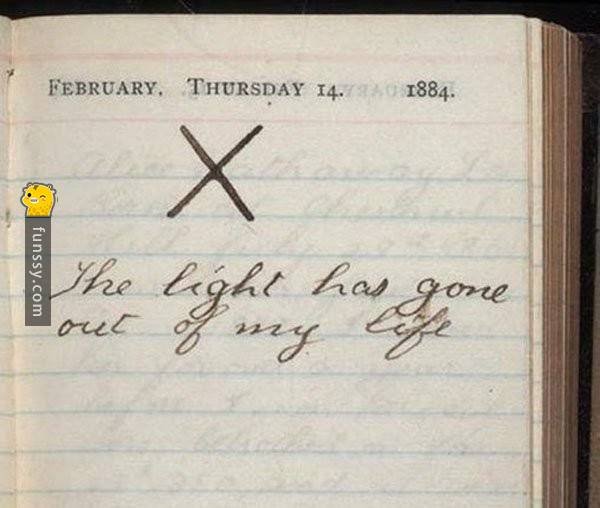 FEBRUARY. THURSDAY 14. 1884.
X
The light has gone
out of my life
funssy.com